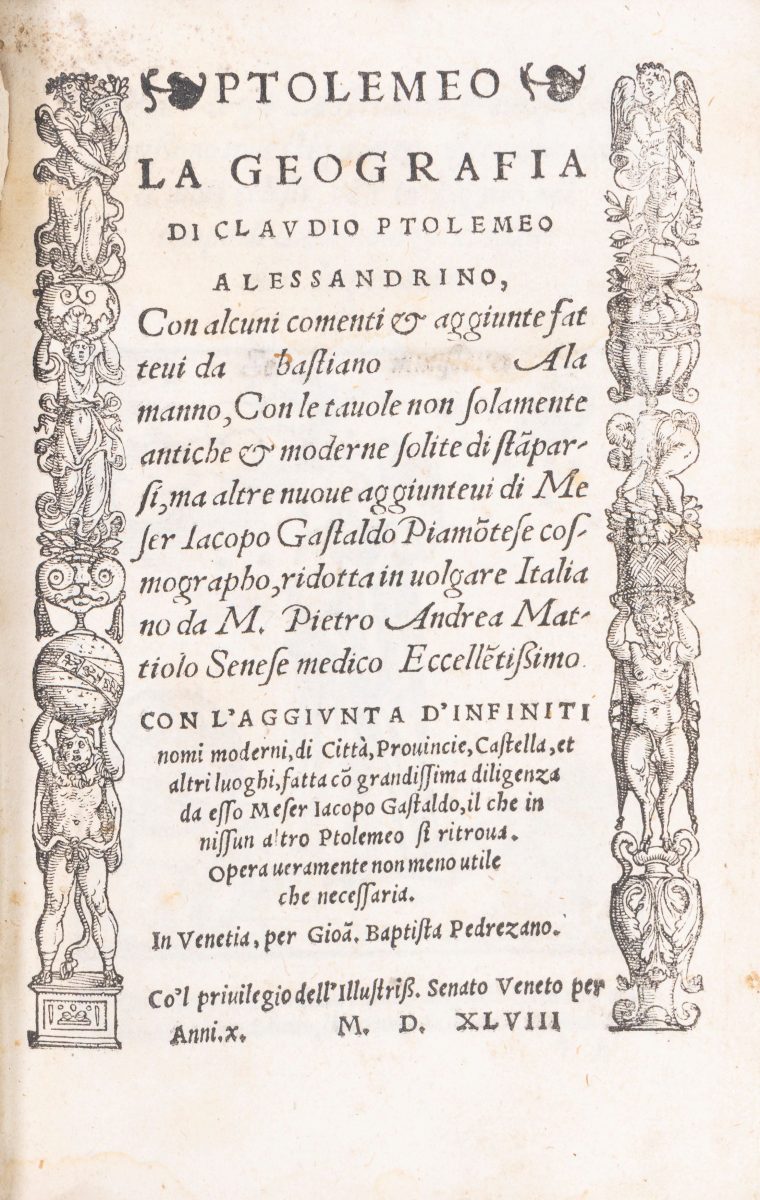 PTOLEMEO
LA GEOGRAFIA
DI CLAVDIO PTOLEMEO
ALESSANDRINO,
Con alcuni comenti & aggiunte fat
teui da bastiano Ala
manno, Con le tauole non solamente
antiche & moderne solite di stãpar-
si, ma altre nuoue aggiunteui di Me
ser Iacopo Gastaldo Piamõtese cos-
mographo, ridotta in uolgare Italia
no da M. Pietro Andrea Mat-
tiolo Senese medico Eccellẽtißimo.
CON L'AGGIVNTA D'INFINITI
nomi moderni, di Città, Prouincie, Castella, et
altri luoghi, fatta cõ grandissima diligenza
da esso Meser Iacopo Gastaldo, il che in
nissun altro Ptolemeo si ritroua.
Opera ueramente non meno utile
che necessaria.
In Venetia, per Gioã. Baptista Pedrezano.
Co'l priuilegio dell'Illustriß. Senato Veneto per
Anni. x. M. D. XLVIII